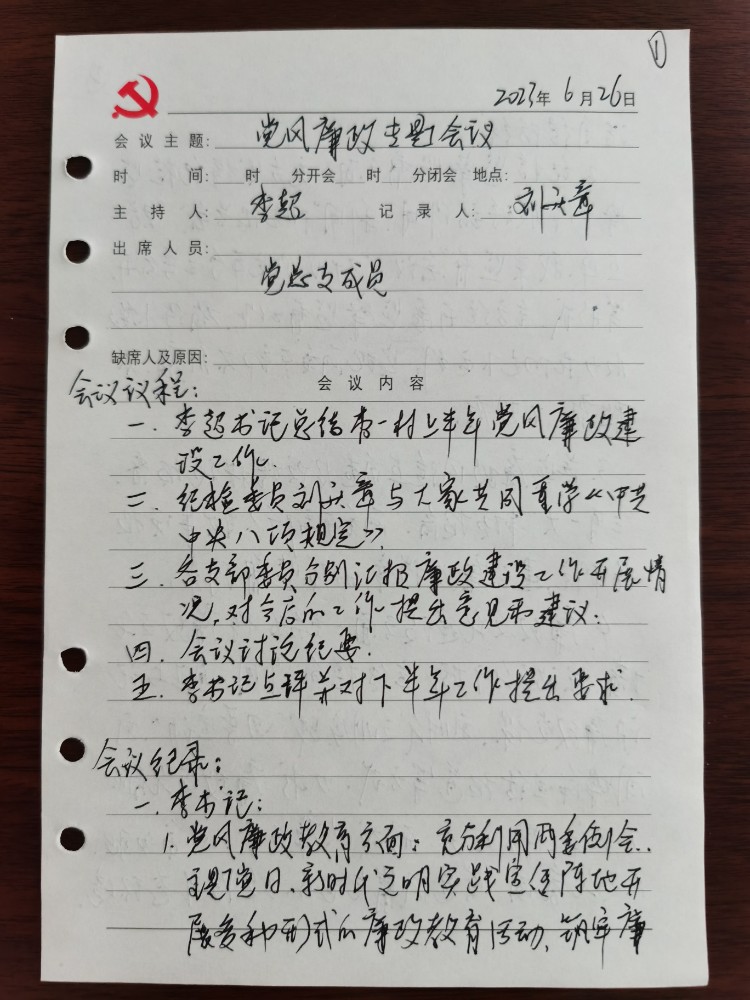 ①
2023年 6月26日
会议主题: 党风廉政专题会议
时 间: 时 分开会 时 分闭会 地点:
主 持 人: 李超 记 录 人: 刘庆章
出席人员:
党总支成员
缺席人及原因:
会议内容
会议议程:
一. 李超书记总结李一村上半年党风廉政建
设工作.
二. 纪检委员刘庆章与大家共同重学《中共
中央八项规定》
三. 各支部委员分别汇报廉政建设工作开展情
况,对今后的工作提出意见和建议;
四. 会议讨论纪要.
五. 李书记点评并对下半年工作提出要求.
会议纪录:
一. 李书记:
1. 党风廉政教育方面: 充分利用两委例会、
主题党日、新时代文明实践宣传阵地开
展多种形式的廉政教育活动、筑牢廉